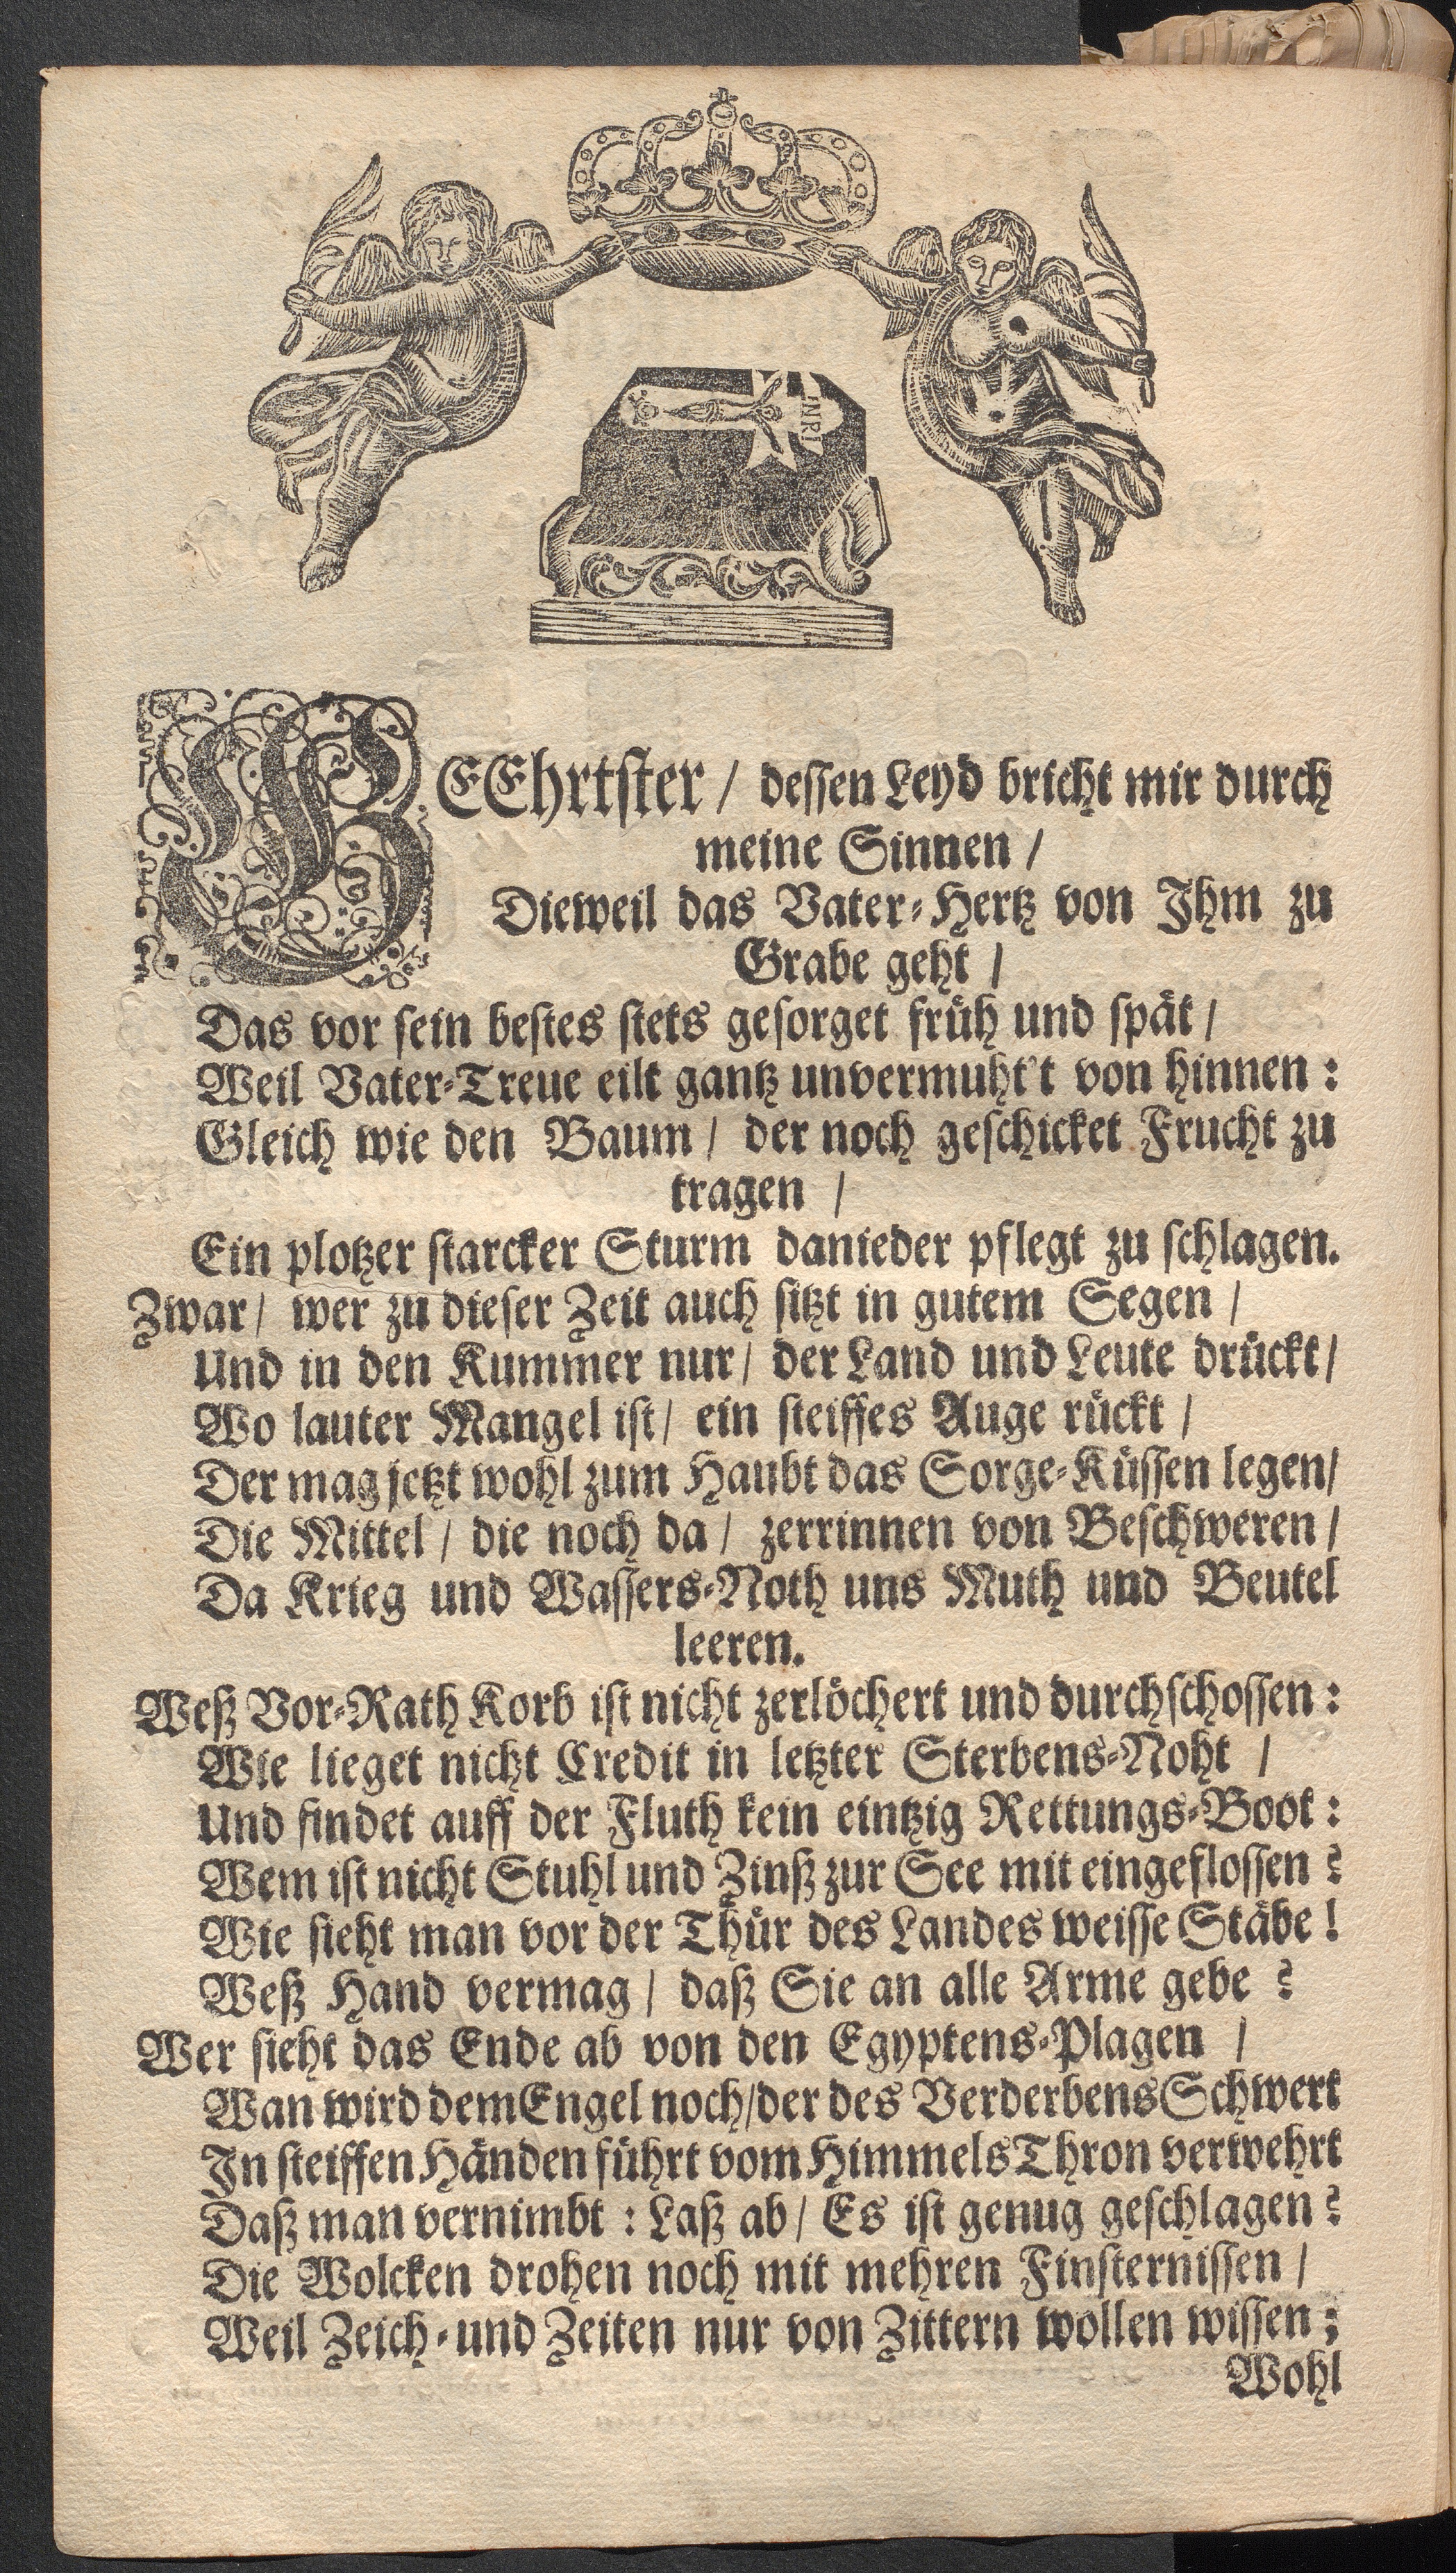 INRI
GEEhrtster / dessen Leyd bricht mir durch
meine Sinnen /
Dieweil das Vater-Hertz von Ihm zu
Grabe geht /
Das vor sein bestes stets gesorget früh und spät /
Weil Vater-Treue eilt gantz unvermuht't von hinnen :
Gleich wie den Baum / der noch geschicket Frucht zu
tragen /
Ein plotzer starcker Sturm danieder pflegt zu schlagen.
Zwar / wer zu dieser Zeit auch sitzt in gutem Segen /
Und in den Kummer nur / der Land und Leute drückt /
Wo lauter Mangel ist / ein steiffes Auge rückt /
Der mag jetzt wohl zum Haubt das Sorge-Küssen legen /
Die Mittel / die noch da / zerrinnen von Beschweren /
Da Krieg und Wassers-Noth uns Muth und Beutel
leeren.
Weß Vor-Rath Korb ist nicht zerlöchert und durchschossen :
Wie lieget nicht Credit in letzter Sterbens-Noht /
Und findet auff der Fluth kein eintzig Rettungs-Boot :
Wem ist nicht Stuhl und Zinß zur See mit eingeflossen ?
Wie sieht man vor der Thür des Landes weisse Stäbe !
Weß Hand vermag / daß Sie an alle Arme gebe ?
Wer sieht das Ende ab von den Egyptens-Plagen /
Wan wird dem Engel noch / der des Verderbens Schwert
In steiffen Händen führt vom Himmels Thron verwehrt
Daß man vernimbt : Laß ab / Es ist genug geschlagen ?
Die Wolcken drohen noch mit mehren Finsternissen /
Weil Zeich- und Zeiten nur von Zittern wollen wissen ;
Wohl